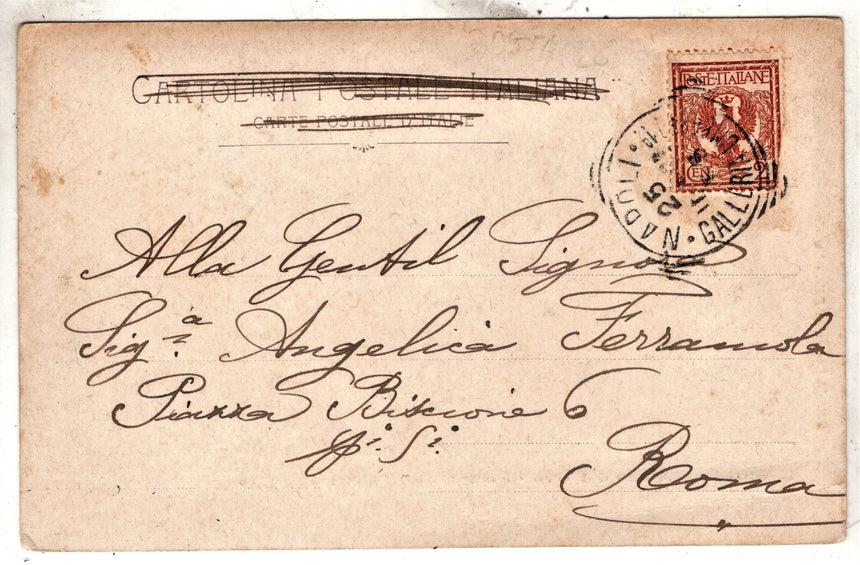 CARTOLINA POSTALE ITALIANA
CARTE POSTALE D'ITALIE
POSTE·ITALIANE
CEN 2
NAPOLI · GALLERIA
25
Alla Gentil Signora
Sig.ª Angelica Ferramola
Piazza Biscione 6
Roma